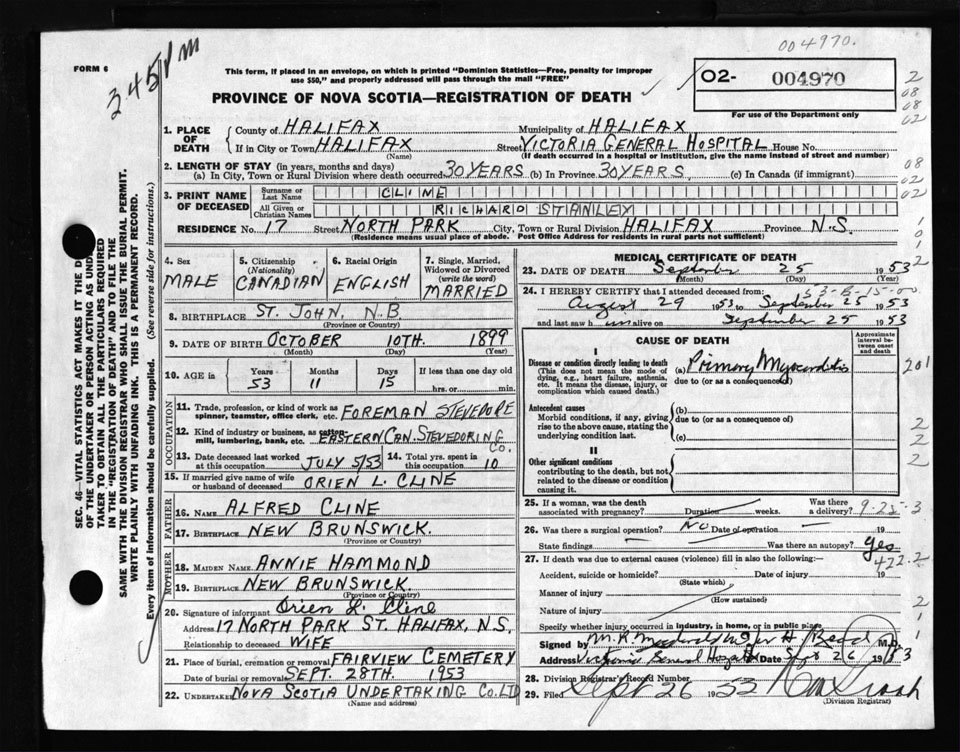 004970.
3 45 PM
FORM 6
This form, if placed in an envelope, on which is printed "Dominion Statistics—Free, penalty for improper
use $50," and properly addressed will pass through the mail "FREE"
PROVINCE OF NOVA SCOTIA—REGISTRATION OF DEATH
O2- 004970
For use of the Department only
2
08
08
02
1. PLACE OF DEATH
County of HALIFAX Municipality of HALIFAX
If in City or Town HALIFAX Street VICTORIA GENERAL HOSPITAL House No.
(Name) (If death occurred in a hospital or institution, give the name instead of street and number)
2. LENGTH OF STAY (in years, months and days)
(a) In City, Town or Rural Division where death occurred 30 YEARS (b) In Province 30 YEARS. (c) In Canada (if immigrant)
08
02
02
3. PRINT NAME OF DECEASED
Surname or Last Name CLINE
All Given or Christian Names RICHARD STANLEY
RESIDENCE No. 17 Street NORTH PARK City, Town or Rural Division HALIFAX Province N.S.
(Residence means usual place of abode. Post Office Address for residents in rural parts not sufficient)
4. Sex
MALE
5. Citizenship (Nationality)
CANADIAN
6. Racial Origin
ENGLISH
7. Single, Married, Widowed or Divorced (write the word)
MARRIED
8. BIRTHPLACE ST. JOHN, N.B.
(Province or Country)
9. DATE OF BIRTH OCTOBER 10TH. 1899
(Month) (Day) (Year)
10. AGE in Years Months Days If less than one day old
53 11 15 hrs. or min.
OCCUPATION
11. Trade, profession, or kind of work as spinner, teamster, office clerk, etc. FOREMAN STEVEDORE
12. Kind of industry or business, as cotton-mill, lumbering, bank, etc. EASTERN CAN. STEVEDORING CO.
13. Date deceased last worked at this occupation JULY 5/53 14. Total yrs. spent in this occupation 10
15. If married give name of wife or husband of deceased ORIEN L. CLINE
FATHER
16. Name ALFRED CLINE
17. Birthplace NEW BRUNSWICK.
(Province or Country)
MOTHER
18. Maiden Name ANNIE HAMMOND
19. Birthplace NEW BRUNSWICK.
(Province or Country)
20. Signature of informant Orien L. Cline
Address 17 NORTH PARK ST. HALIFAX, N.S.
Relationship to deceased WIFE
21. Place of burial, cremation or removal FAIRVIEW CEMETERY
Date of burial or removal SEPT. 28TH. 1953
22. Undertaker NOVA SCOTIA UNDERTAKING CO. LTD
(Name and address)
MEDICAL CERTIFICATE OF DEATH
23. DATE OF DEATH September 25 1953
(Month) (Day) (Year)
24. I HEREBY CERTIFY that I attended deceased from:
August 29 1953 to September 25 1953
and last saw him alive on September 25 1953
CAUSE OF DEATH
Approximate interval between onset and death
I
Disease or condition directly leading to death
(This does not mean the mode of dying, e.g., heart failure, asthenia, etc. It means the disease, injury, or complication which caused death.)
(a) Primary Myocarditis
due to (or as a consequence of)
201
Antecedent causes
Morbid conditions, if any, giving rise to the above cause, stating the underlying condition last.
(b)
due to (or as a consequence of)
(c)
II
Other significant conditions
contributing to the death, but not related to the disease or condition causing it.
25. If a woman, was the death associated with pregnancy? Duration weeks. Was there a delivery?
9-25-3
26. Was there a surgical operation? NO Date of operation 19
State findings Was there an autopsy? Yes
422.2
27. If death was due to external causes (violence) fill in also the following:
Accident, suicide or homicide? Date of injury 19
(State which)
Manner of injury
(How sustained)
Nature of injury
Specify whether injury occurred in industry, in home, or in public place
Signed by M.D.
Address Victoria General Hospital Date Sept 26 1953
28. Division Registrar's Record Number
29. Filed Sept 26 1953
(Division Registrar)
SEC. 46—VITAL STATISTICS ACT MAKES IT THE
OF THE UNDERTAKER OR PERSON ACTING AS
TAKER TO OBTAIN ALL THE PARTICULARS REQUIRED
IN THE "REGISTRATION OF DEATH" AND TO FILE THE
SAME WITH THE DIVISION REGISTRAR WHO SHALL ISSUE THE BURIAL PERMIT.
WRITE PLAINLY WITH UNFADING INK. THIS IS A PERMANENT RECORD.
Every item of information should be carefully supplied. (See reverse side for instructions.)